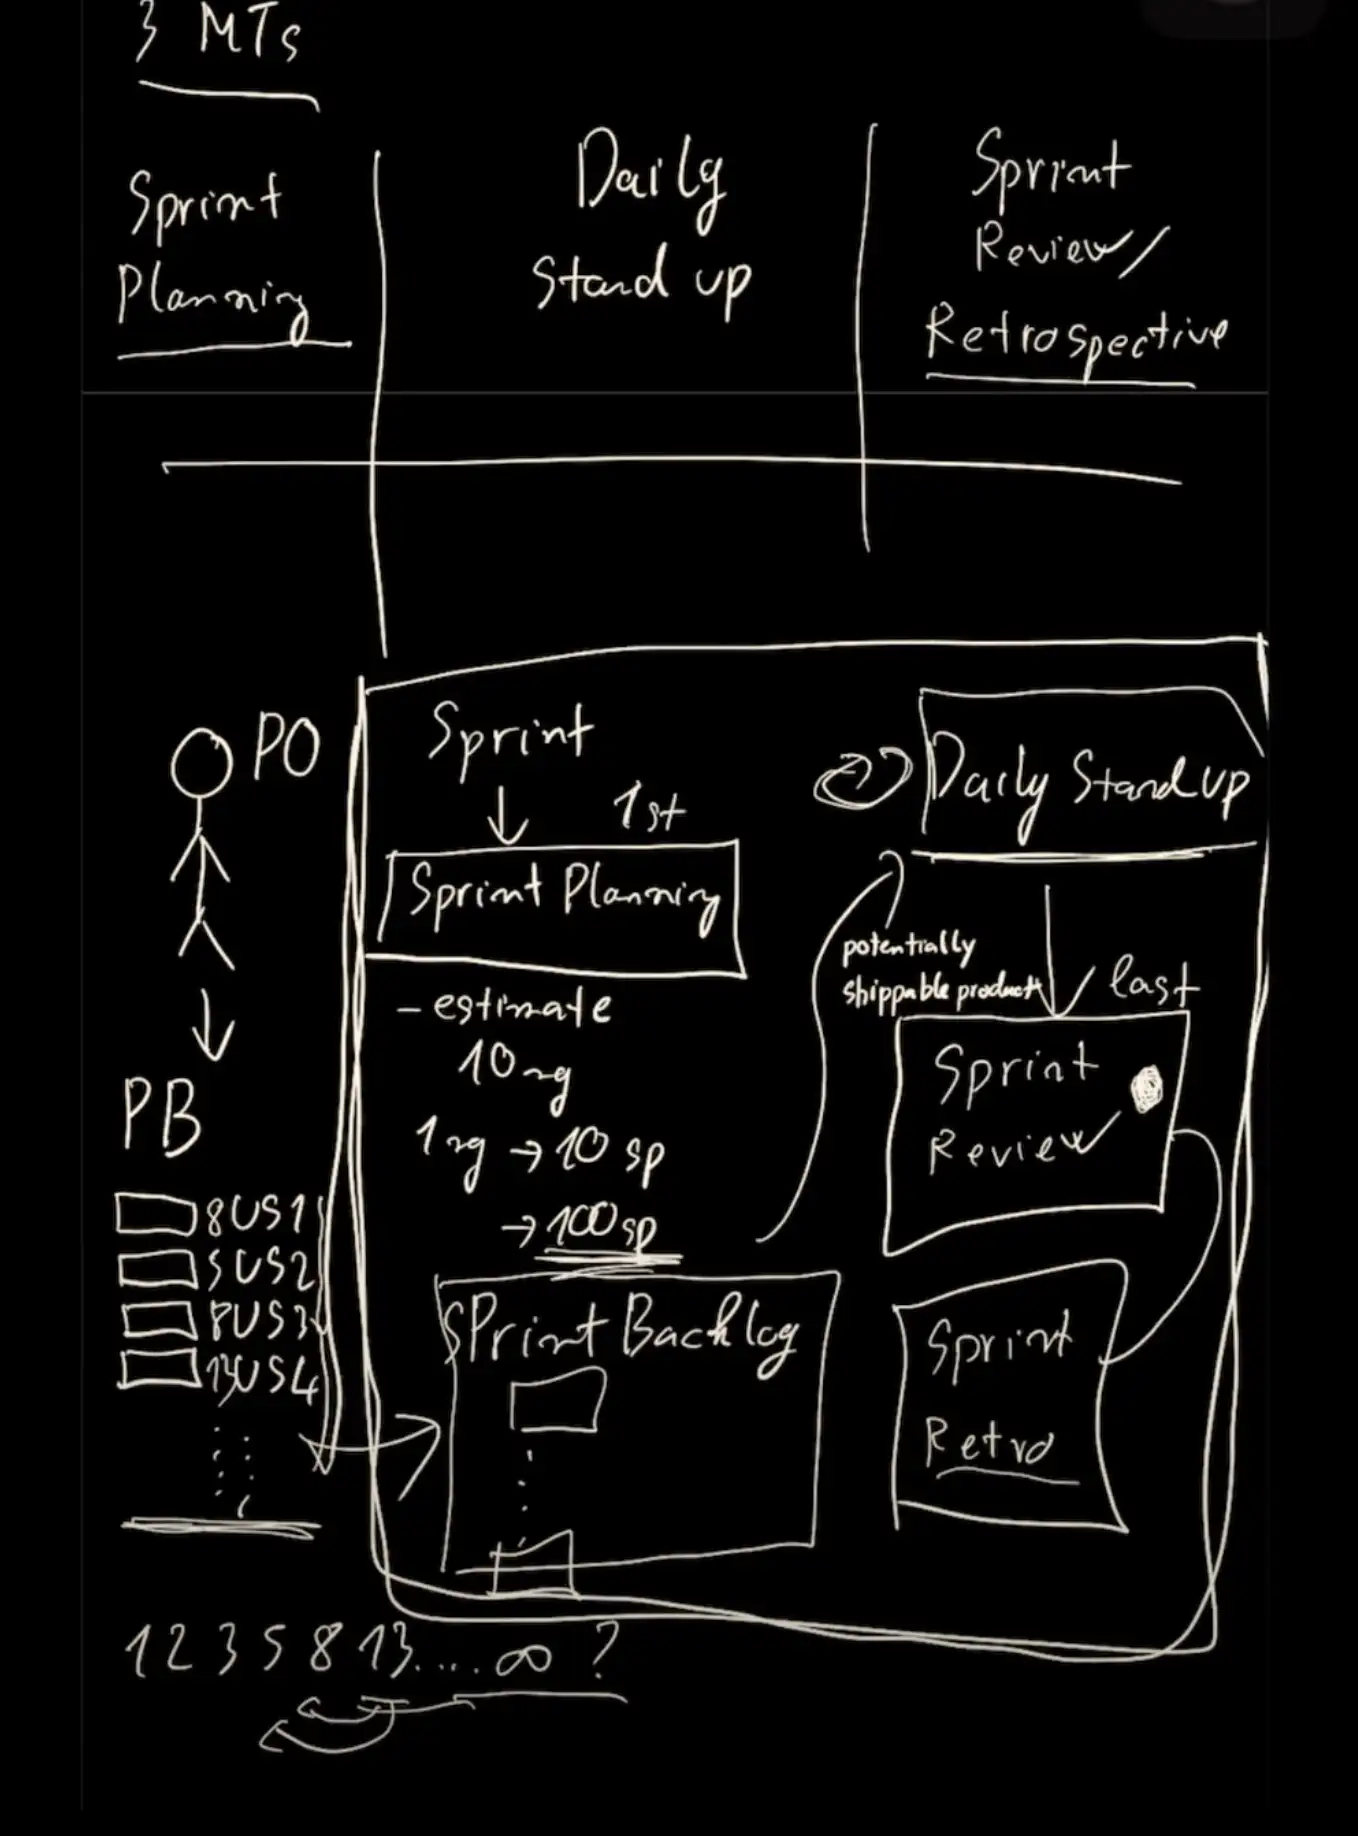 3 MTs
Sprint
Planning
Daily
Stand up
Sprint
Review/
Retrospective
PO
PB
8 US1
5 US2
8 US3
13 US4
Sprint
1st
Sprint Planning
- estimate
10 ng
1 ng → 10 sp
→ 100 sp
SPrint Backlog
Daily Stand up
potentially
shippable product
last
Sprint
Review
Sprint
Retro
1 2 3 5 8 13 .... ∞ ?